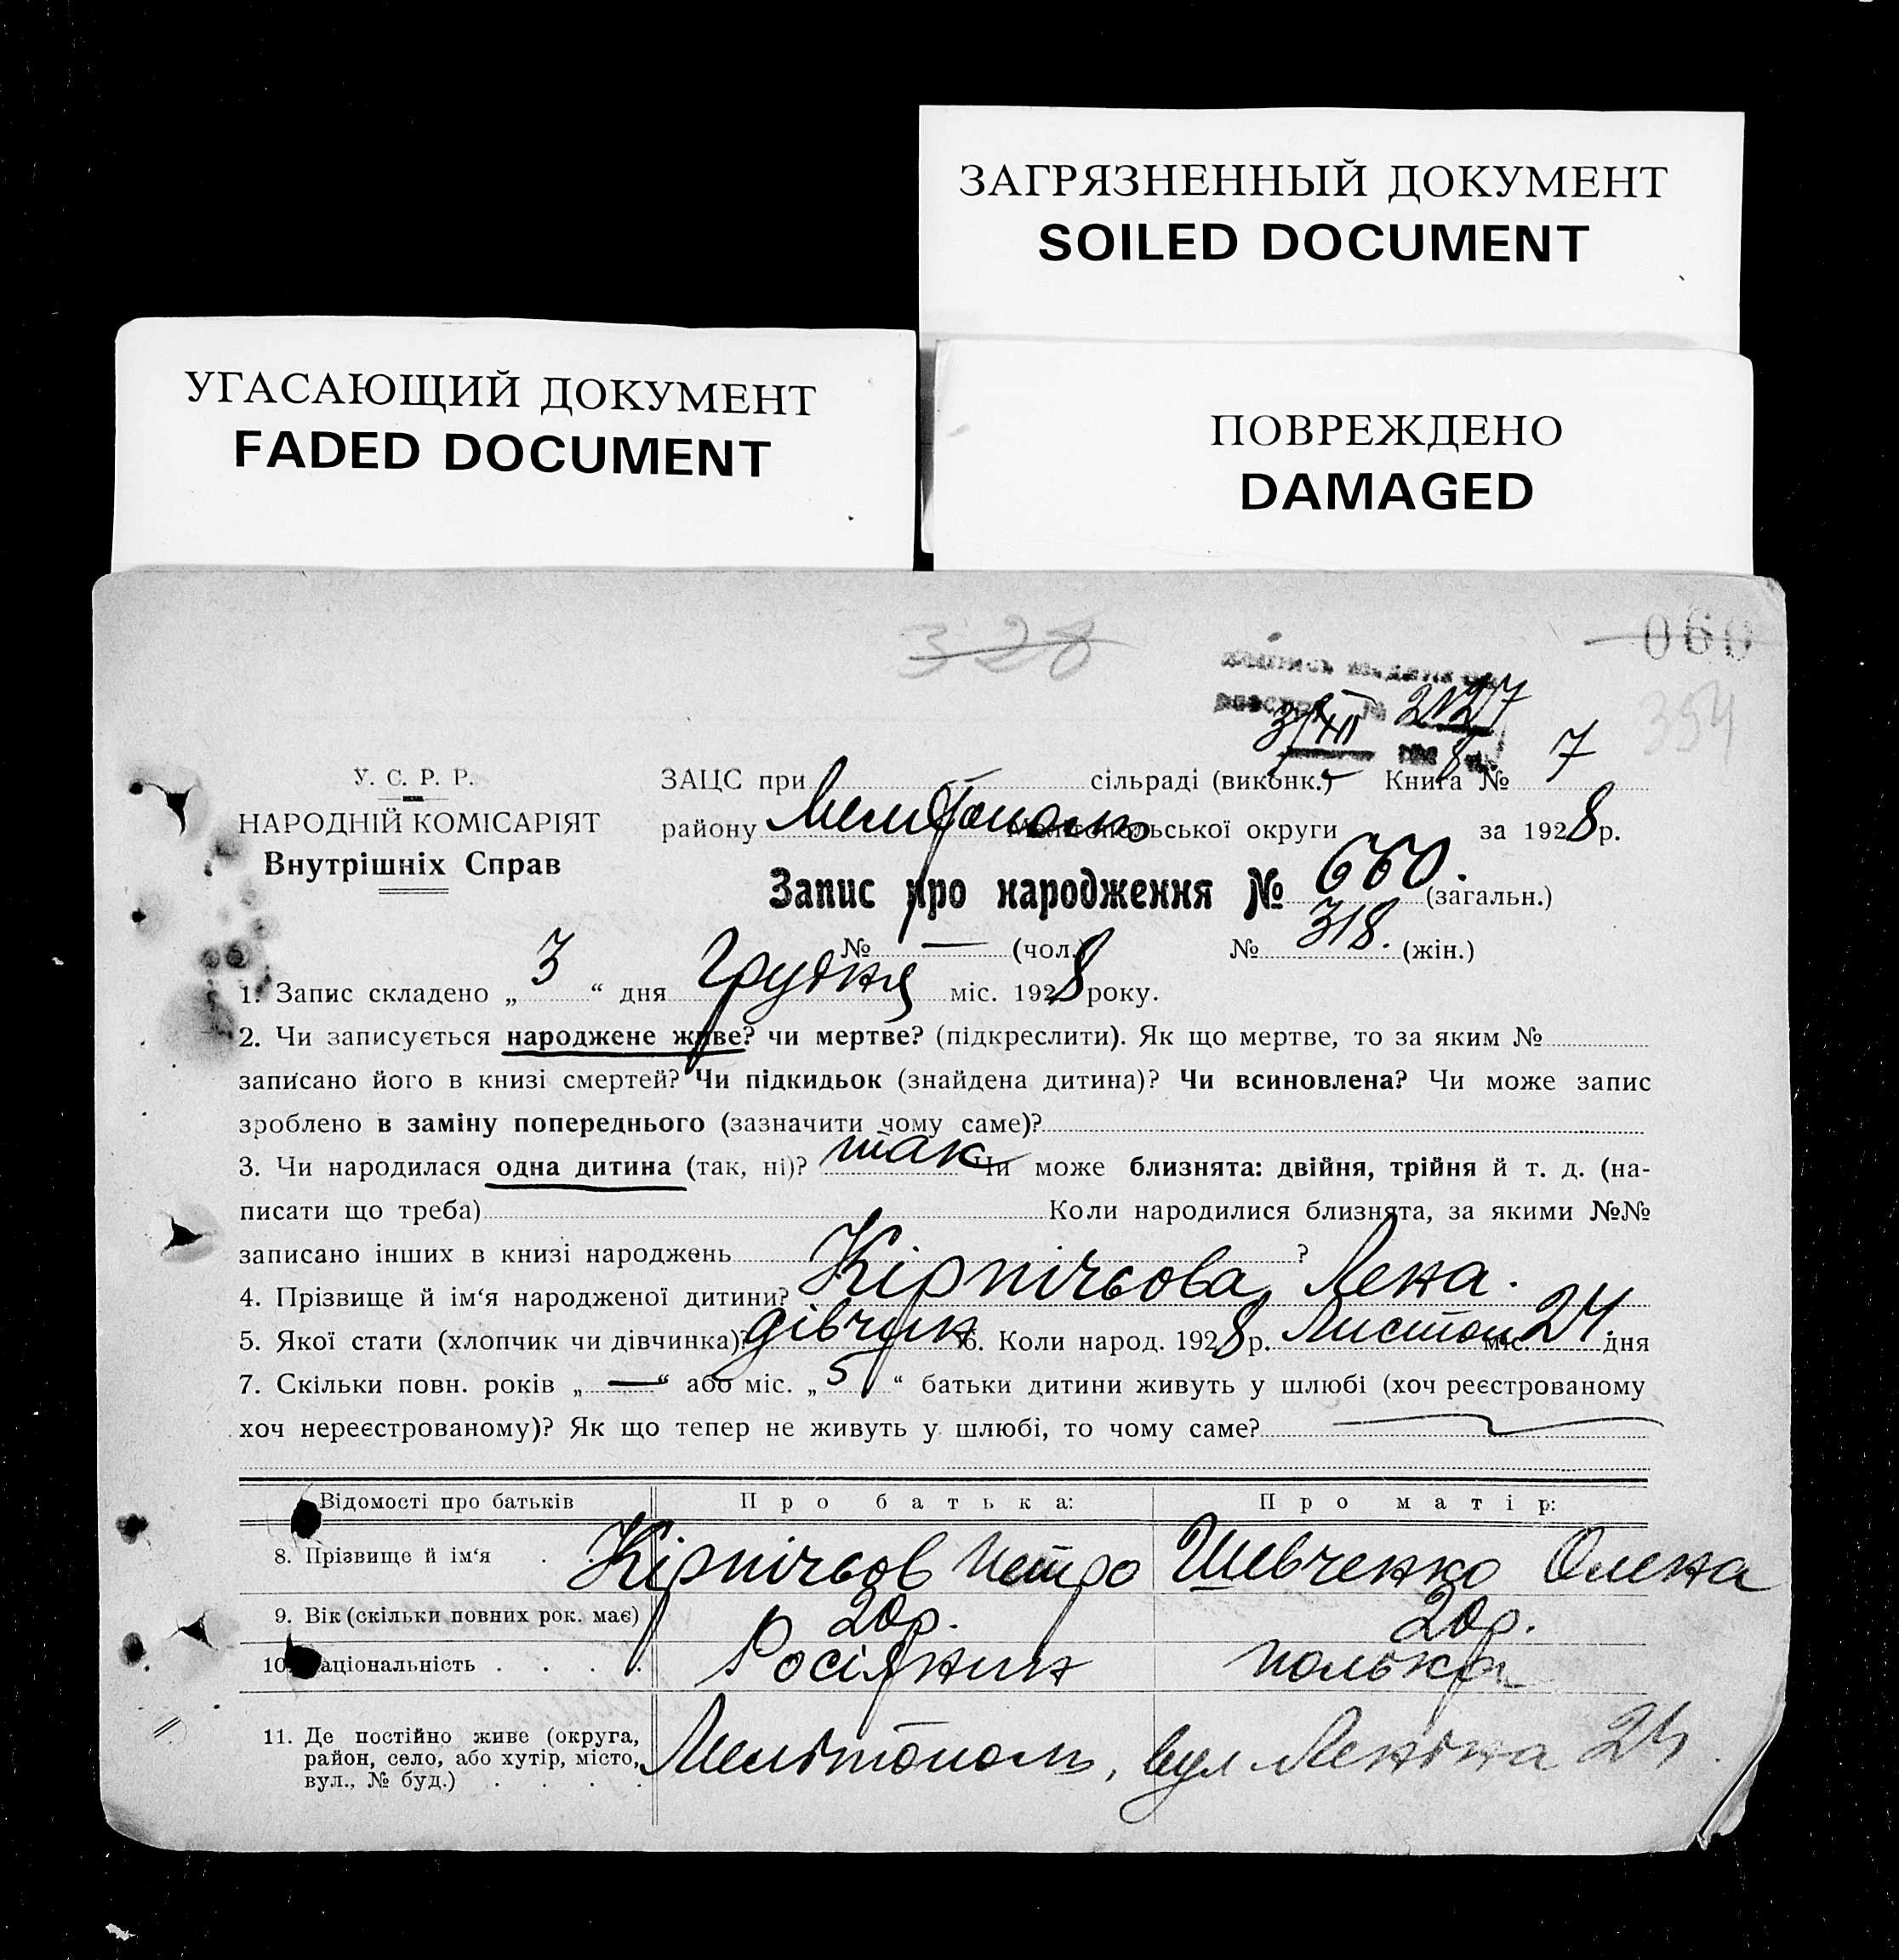 ЗАГРЯЗНЕННЫЙ ДОКУМЕНТ
SOILED DOCUMENT
УГАСАЮЩИЙ ДОКУМЕНТ
FADED DOCUMENT
ПОВРЕЖДЕНО
DAMAGED
328
060
354
3/XII 2127
У. С. Р. Р.
НАРОДНІЙ КОМІСАРІЯТ
Внутрішніх Справ
ЗАЦС при сільраді (виконк.) Книга № 7
району Мелітополь Мелітопольської округи за 1928 р.
Запис про народження № 660. (загальн.)
№ — (чол.) № 318. (жін.)
1. Запис складено „ 3 “ дня Грудня міс. 1928 року.
2. Чи записується народжене живе? чи мертве? (підкреслити). Як що мертве, то за яким №
записано його в книзі смертей? Чи підкидьок (знайдена дитина)? Чи всиновлена? Чи може запис
зроблено в заміну попереднього (зазначити чому саме)?
3. Чи народилася одна дитина (так, ні)? так Чи може близнята: двійня, трійня й т. д. (на-
писати що треба) Коли народилися близнята, за якими №№
записано інших в книзі народжень ?
4. Прізвище й ім‘я народженої дитини? Кірпічьова Лена.
5. Якої стати (хлопчик чи дівчинка)? дівчин 6. Коли народ. 1928 р. Листоп міс. 24. дня
7. Скільки повн. років „ — “ або міс. „ 5 “ батьки дитини живуть у шлюбі (хоч реєстрованому
хоч нереєстрованому)? Як що тепер не живуть у шлюбі, то чому саме?
Відомості про батьків Про батька: Про матір:
8. Прізвище й ім‘я Кірпічьов Петро Шевченко Олена
9. Вік (скільки повних рок. має) 20 р. 20 р.
10. Національність Росіянин полька
11. Де постійно живе (округа,
район, село, або хутір, місто,
вул., № буд.) Мелітополь, вул Леніна 24